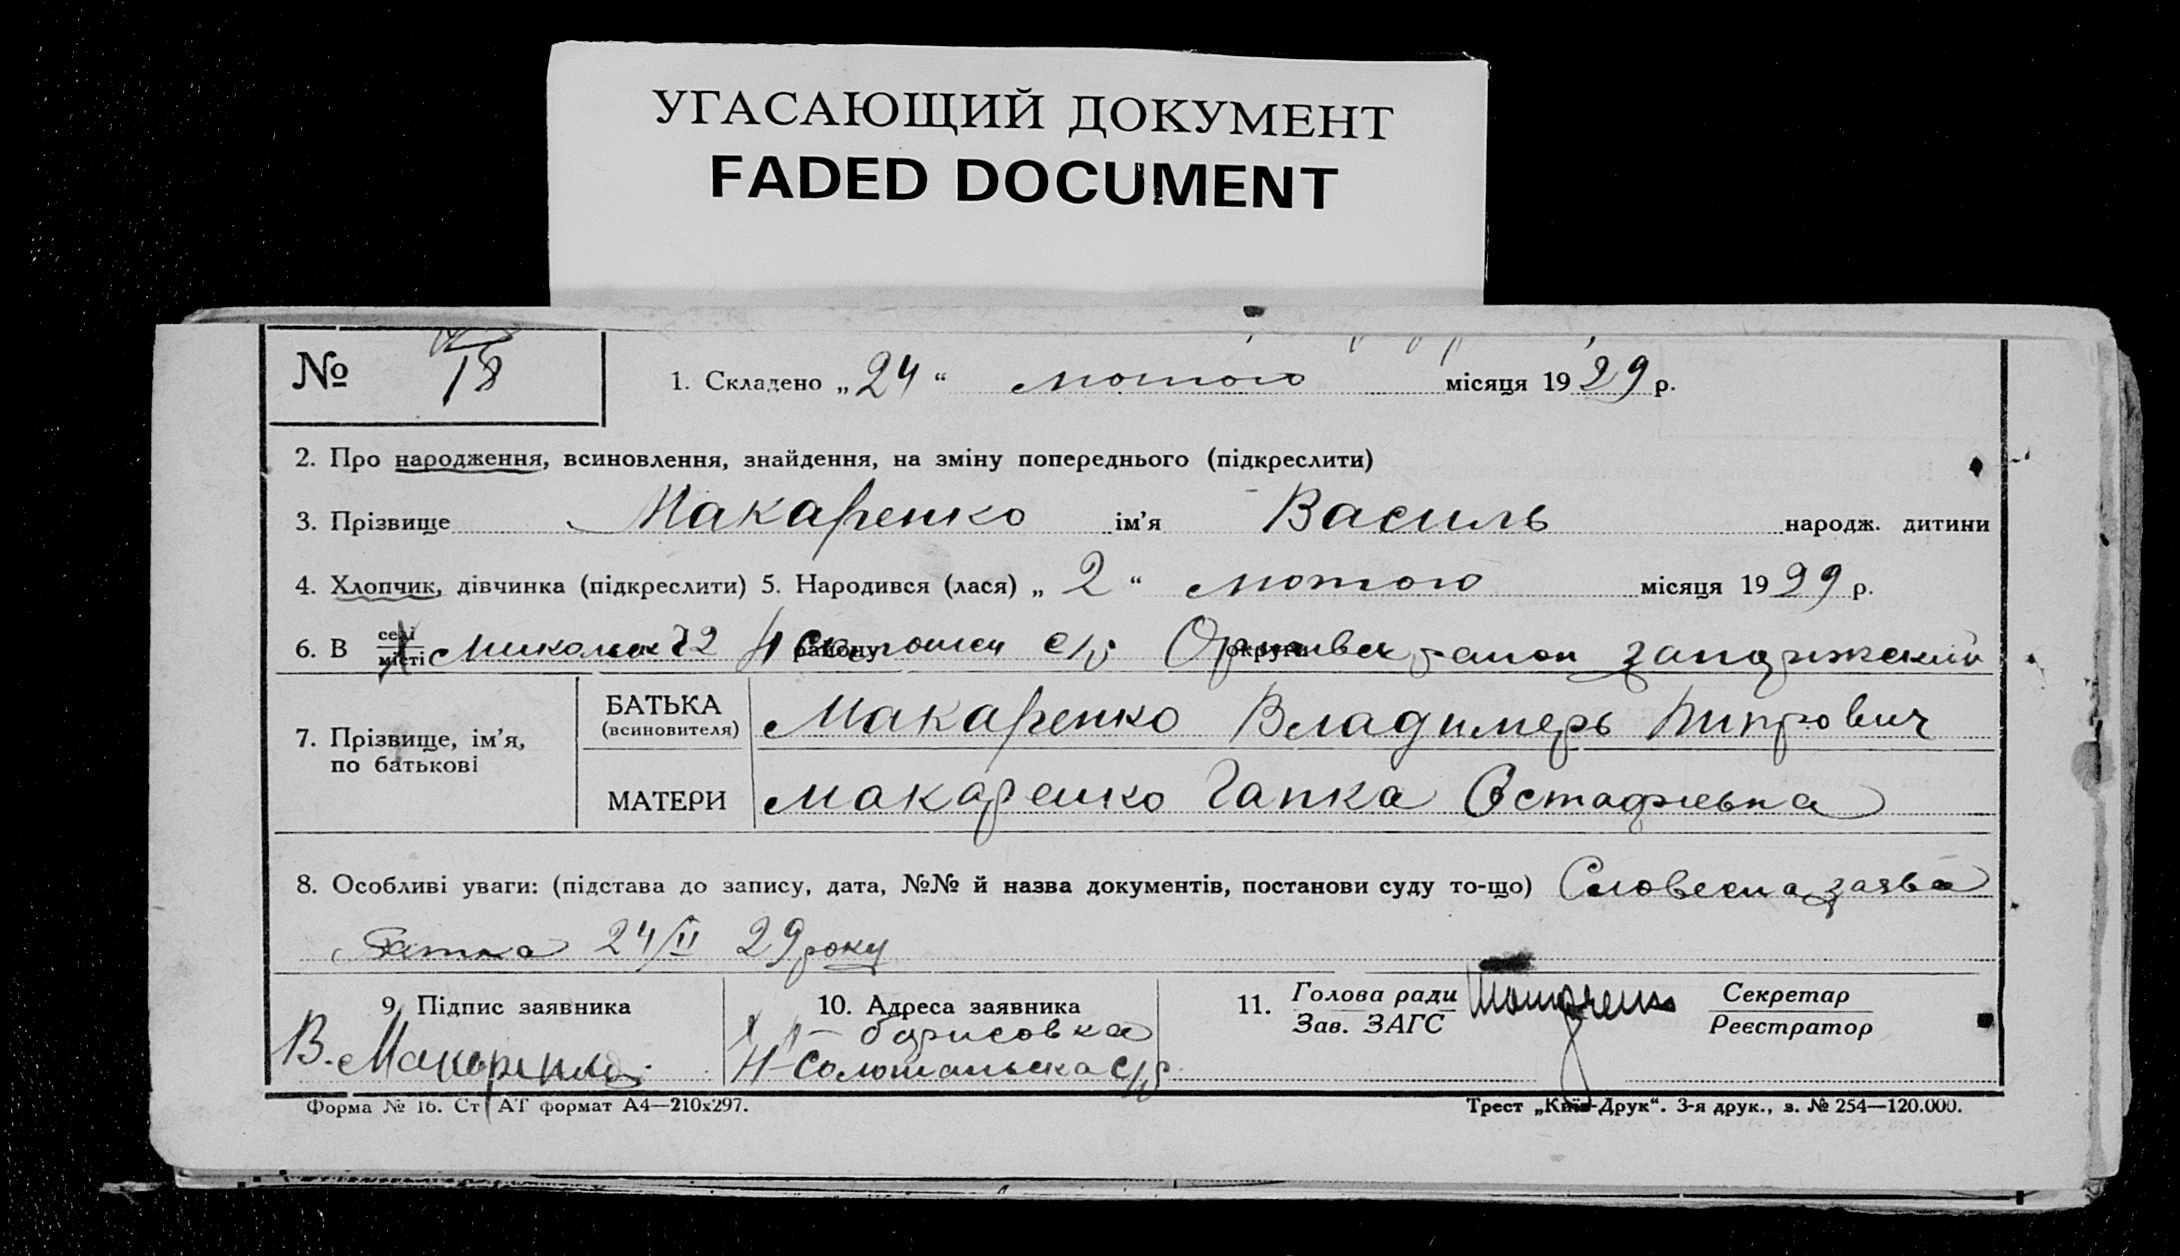 УГАСАЮЩИЙ ДОКУМЕНТ
FADED DOCUMENT
№ 18
1. Складено „24“ лютого місяця 1929 р.
2. Про народження, всиновлення, знайдення, на зміну попереднього (підкреслити)
3. Прізвище Макаренко ім’я Василь народж. дитини
4. Хлопчик, дівчинка (підкреслити) 5. Народився (лася) „2“ лютого місяця 1929 р.
6. В селі місті району с/р округи район
7. Прізвище, ім’я, по батькові
БАТЬКА (всиновителя) Макаренко Владимерь
МАТЕРИ Макаренко Гапка Остафіевна
8. Особливі уваги: (підстава до запису, дата, №№ й назва документів, постанови суду то-що) Словесна заява
батка 24/II 29 року
9. Підпис заявника
В. Макаренко
10. Адреса заявника
борисовка
с/р
11. Голова ради
Зав. ЗАГС
Секретар
Реєстратор
Форма № 16. Ст АТ формат А4—210х297.
Трест „Київ-Друк“. 3-я друк., з. № 254—120.000.